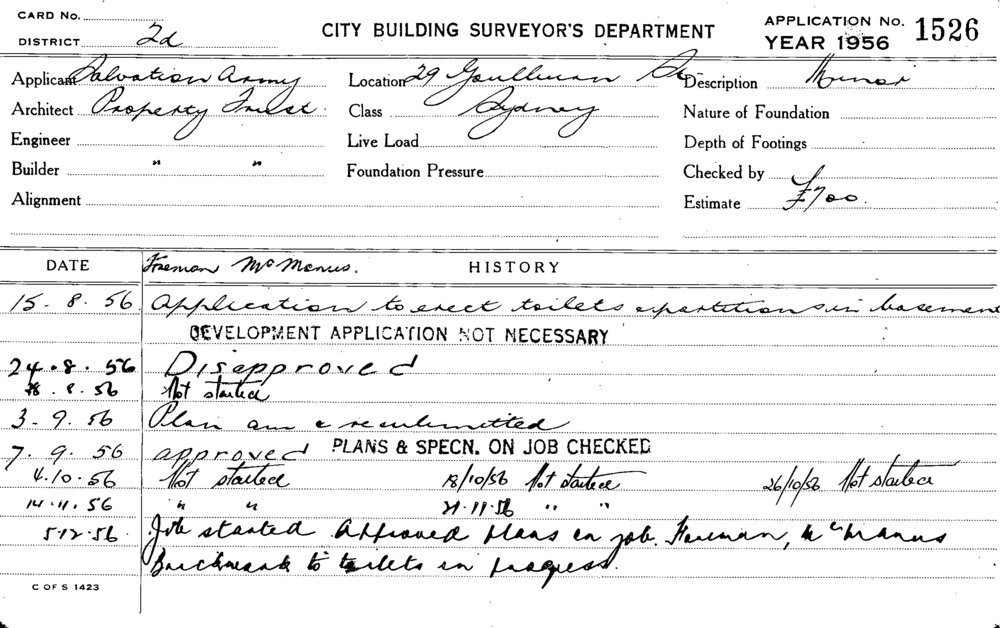 CARD No.
DISTRICT 2d
CITY BUILDING SURVEYOR'S DEPARTMENT
APPLICATION No. 1526
YEAR 1956
Applicant Salvation Army
Location 29 Goulburn St
Description Minor
Architect Property Trust.
Class Sydney
Nature of Foundation
Engineer
Live Load
Depth of Footings
Builder " "
Foundation Pressure
Checked by
Alignment
Estimate £700.
DATE Foreman McManus. HISTORY
15. 8. 56 Application to erect toilets & partitions in basement
DEVELOPMENT APPLICATION NOT NECESSARY
24. 8. 56 Disapproved
8. 56 Not started
3. 9. 56 Plan am & resubmitted
7. 9. 56 approved PLANS & SPECN. ON JOB CHECKED
4.10.56 Not started 18/10/56 Not started 26/10/56 Not started
14.11.56 " " 21.11.56 " "
5.12.56 Job started Approved plans on job. Foreman, McManus
Brickwork to toilets in progress.
C OF S 1423